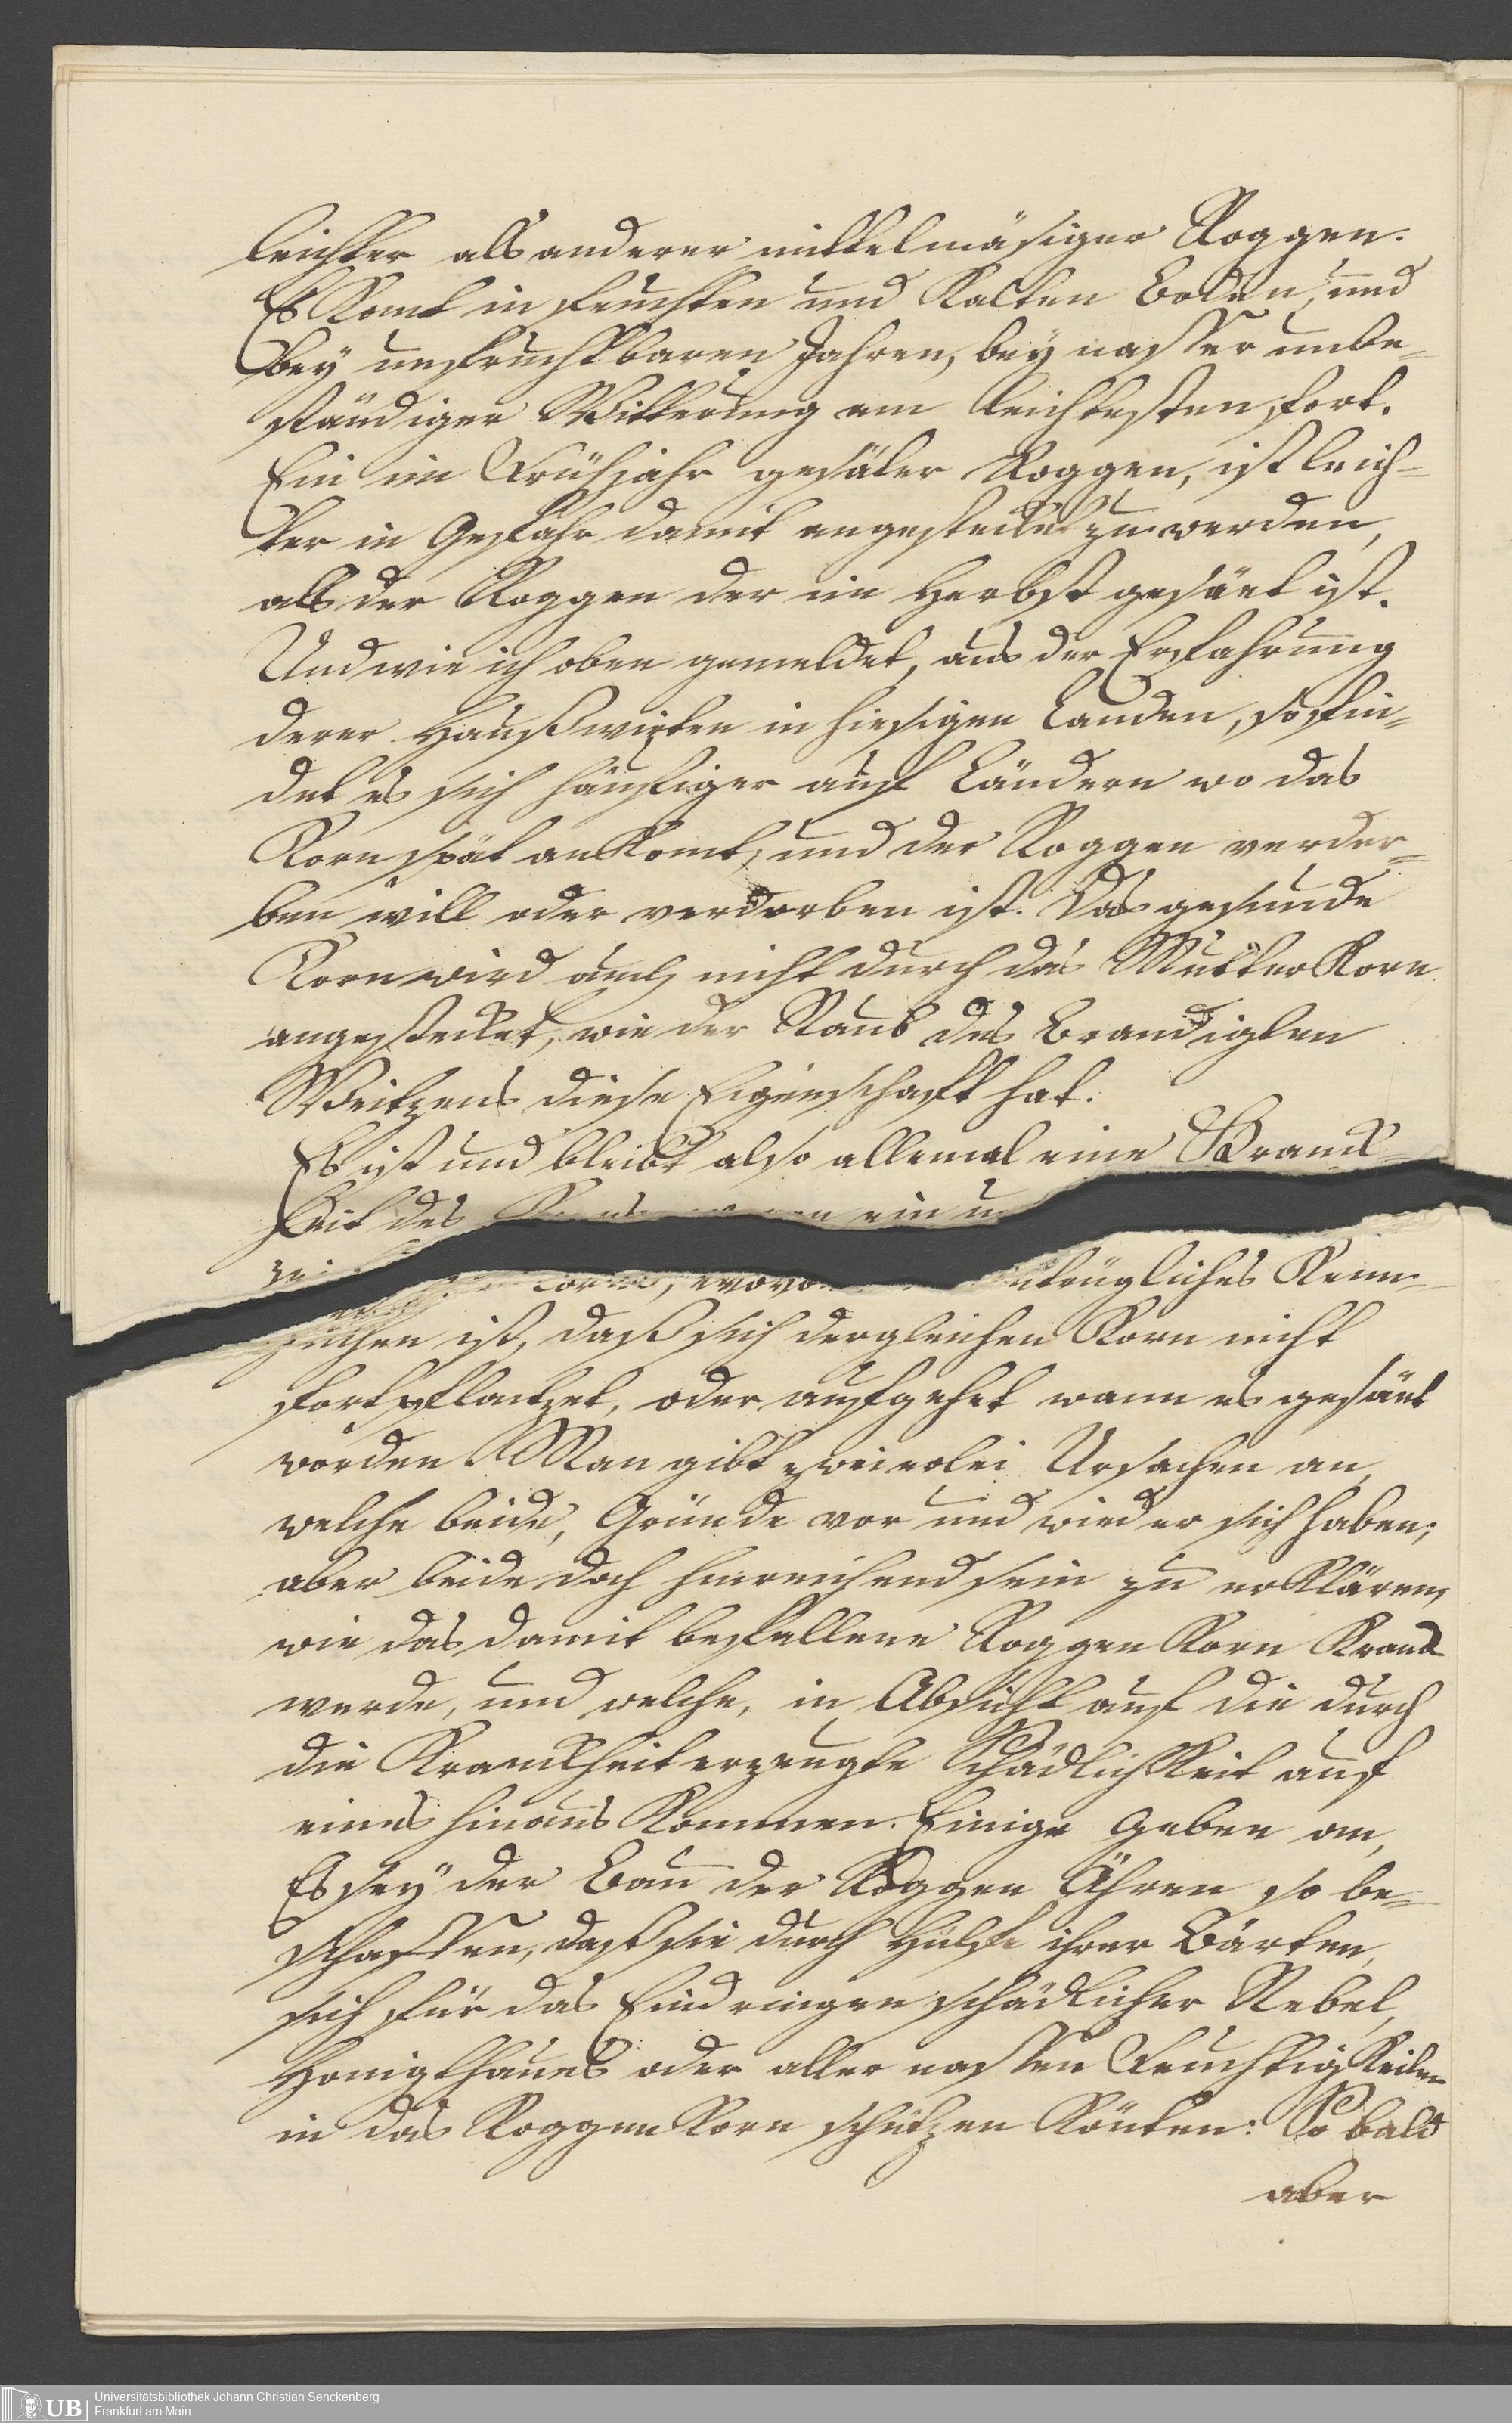 leichter als anderer mittelmäsiger Roggen.
Es komt in feuchten und kalten Boden, und
bey unfruchtbaren Jahren, bey nasser unbe-
ständiger Witterung am leichtesten fort.
Ein im Frühjahr gesäter Roggen, ist leich-
ter in Gefahr damit angestecket zu werden,
als der Roggen der im Herbst gesäet ist.
Und wie ich oben gemeldet, aus der Erfahrung
derer Haußwirten in hiesigen Landen, so fin-
det es sich häufiger auf Ländern wo das
Korn spät ankomt, und der Roggen verder-
ben will oder verdorben ist. Das gesunde
Korn wird auch nicht durch das Mutterkorn
angestecket, wie der Staub des Brandigten
Weitzens diese Eigenschaft hat.
Es ist und bleibt also allemal eine Kranck-
heit des ein
untrügliches Kenn-
zeichen ist, daß sich dergleichen Korn nicht
fortpflantzet, oder aufgehet wann es gesäet
worden. Man gibt zweierlei Ursachen an,
welche beide, Gründe vor und wieder sich haben;
aber beide doch hinreichend sein zu erklären,
wie das damit befallene Roggen Korn krank
werde, und welche, in Absicht auf die durch
die Kranckheit erzeugte Schädlichkeit auf
eines hinaus kommen. Einige geben an,
Es sey der Bau der Roggen Ähren so be-
schaffen, daß sie durch Hülfe ihrer Bärten,
sich für das Eindringen schädlicher Nebel,
Honigthaues oder aller nassen Feuchtigkeiten
in das Roggen Korn schützen könten: So bald
aber
Universitätsbibliothek Johann Christian Senckenberg
UB Frankfurt am Main